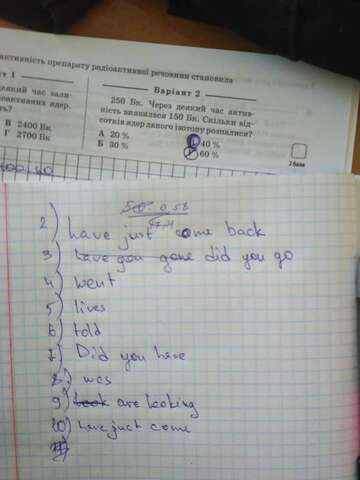 активність препарату радіоактивної речовини становила
Варіант 2
250 Бк. Через деякий час актив-
ність виявилася 150 Бк. Скільки від-
сотків ядер даного ізотопу розпалися?
деякий час зали-
іоактивних ядер.
ть?
В 2400 Бк
Г 2700 Бк
А 20 %
В 40 %
Б 30 %
Г 60 %
2 бали
0,58
2) have just come back
3) have you gone did you go
4) went
5) lives
6) told
7) Did you have
8) was
9) look are looking
10) have just come